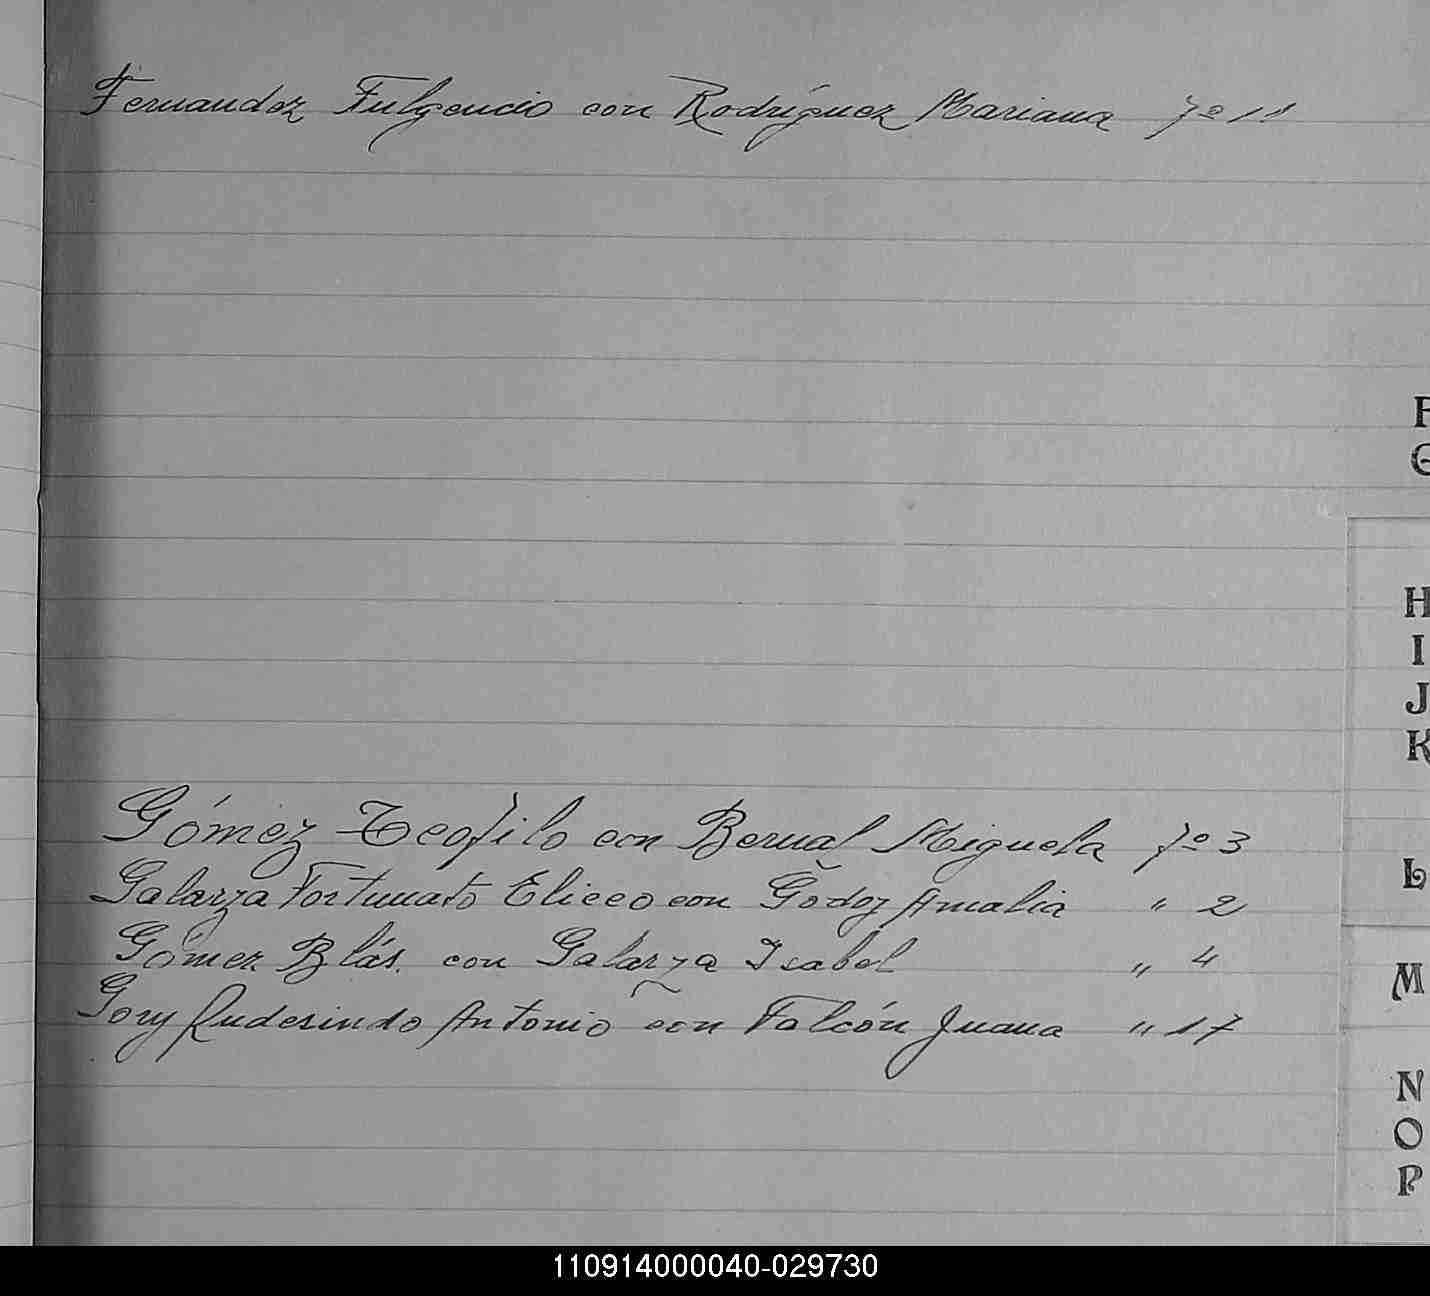 Fernandez Fulgencio con Rodríguez Mariana fº 11
F
G
H
I
J
K
Gómez Teofilo con Bernal Miguela fº 3
Galarza Fortunato Eliceo con Godoy Amalia " 2
L
Gómez Blás. con Galarza Isabel " 4
M
Gory Rudesindo Antonio con Falcón Juana " 17
N
O
P
110914000040-029730